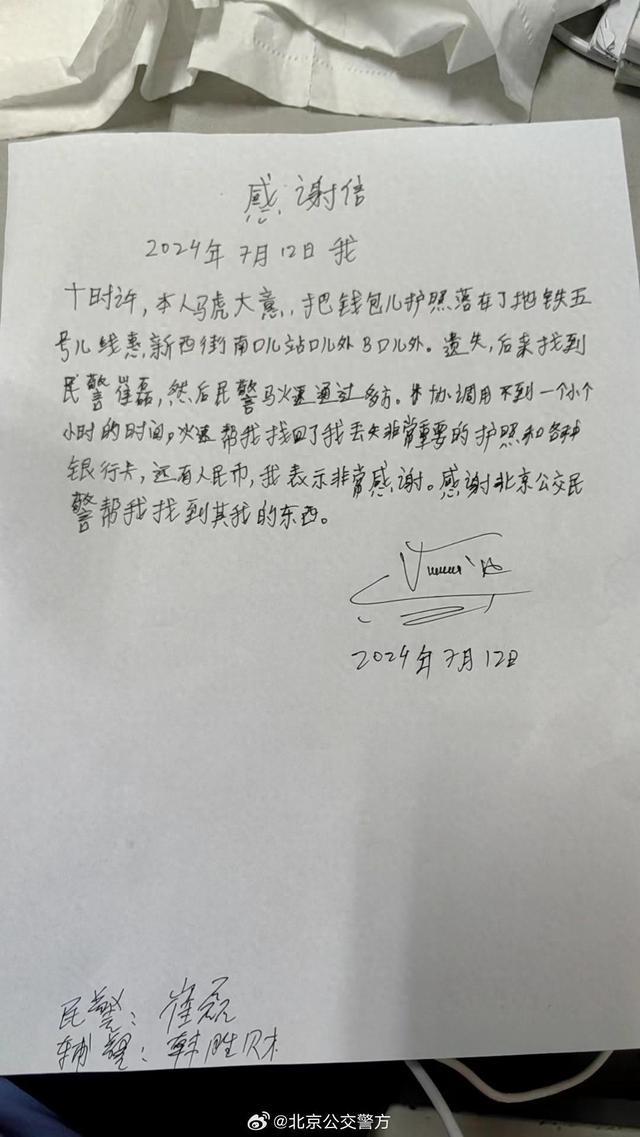 感谢信
2024年7月12日 我
十时许，本人马虎大意，把钱包儿护照落在了地铁五
号儿线惠新西街南口儿站口儿外B口儿外。遗失，后来找到
民警崔磊，然后民警马火速通过多方。协调用不到一个小个
小时的时间，火速帮我找回了我丢失非常重要的护照和各种
银行卡，还有人民币，我表示非常感谢。感谢北京公交民
警帮我找到其我的东西。
2024年7月12日
民警：崔磊
辅警：韩胜
@北京公交警方